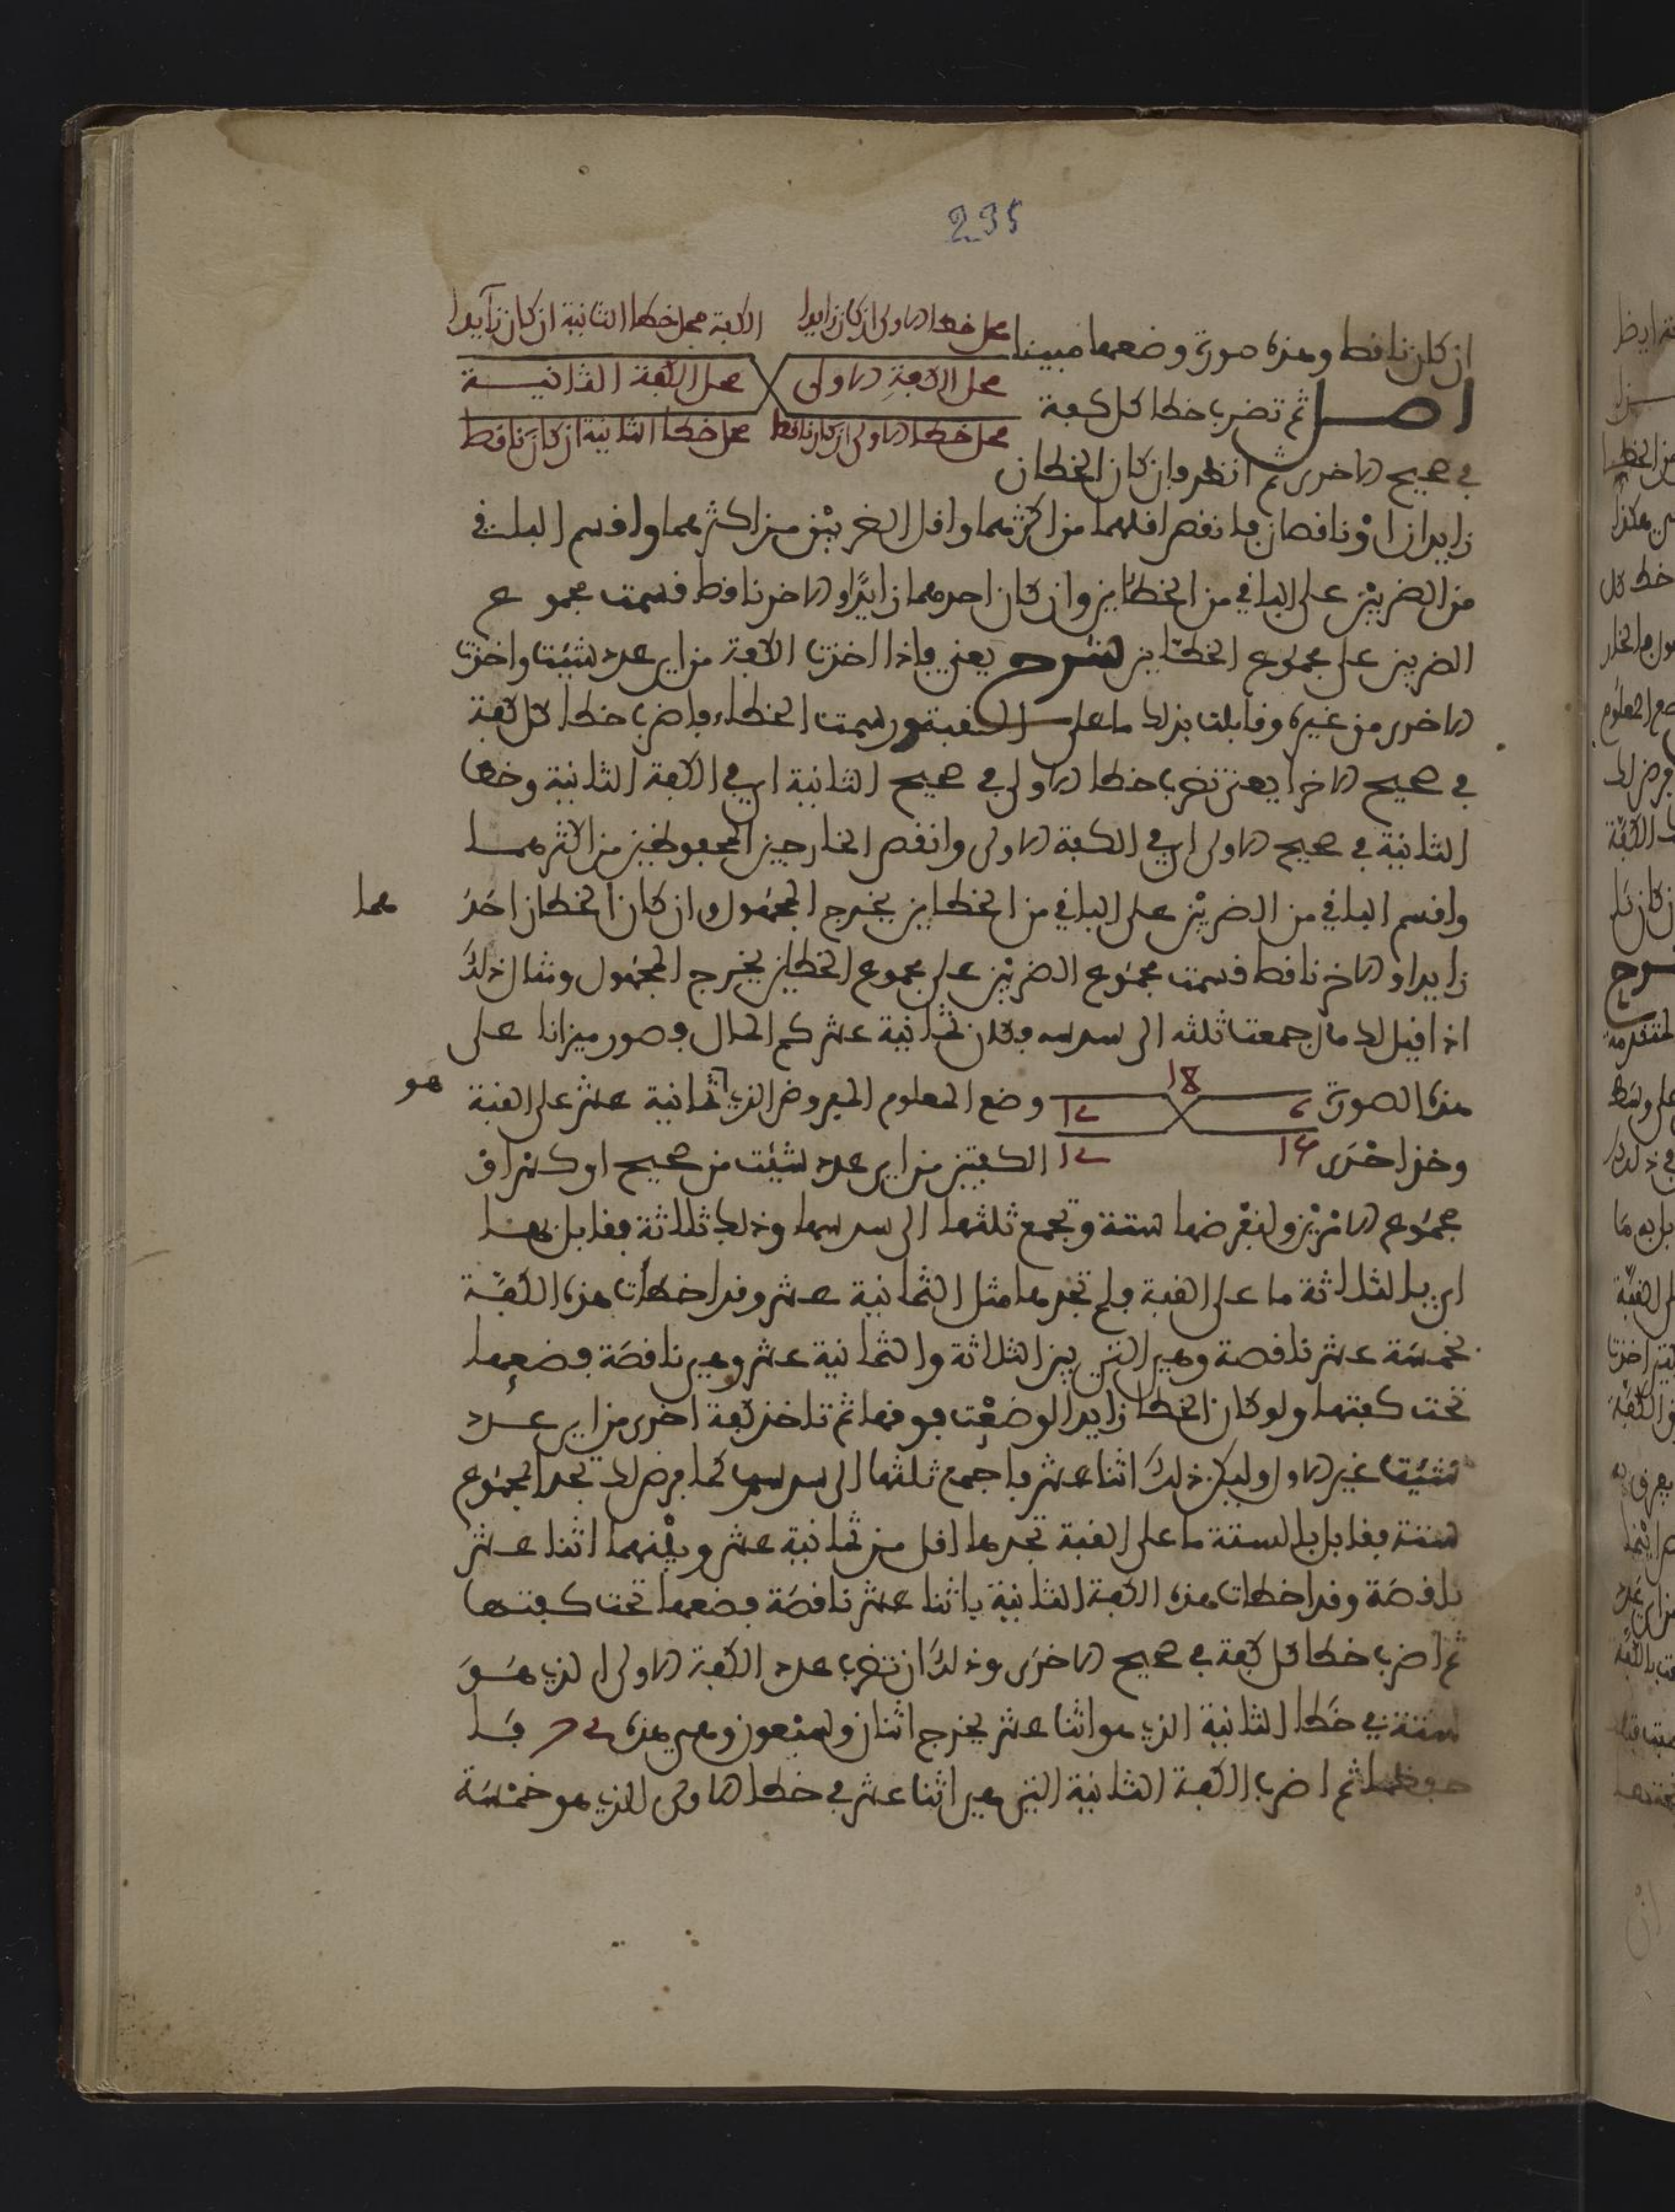 235
ان كان ناقطا وهذه صورة وضعها مبينا
محل خطا الاولى ان كان زايدا الكفة محل خطا الثانية ان كان زآيدا
محل الكفة الاولى محل الكفة الثانيــة
محل خطا الاولى ان كان ناقطا محل خطا الثانية ان كان ناقطا
اصــل ثم تضرب خطا كل كفة
في صحيح الاخرى ثم انظر وان كان الخطان
زايدان او ناقصان فانقص اقلهما من اكثرهما واقل الضربين من اكثرهما واقسم الباقي
من الضربين على الباقي من الخطاين وان كان احدهما زايدا والاخر ناقطا قسمت مجموع
الضربين على مجموع الخطاين شرح يعني فاذا اخذت الكفة من اي عدد شئت واخذت
الاخرى من غيره وقابلت بذلك ما على القبة ورسمت الخطاء فاضرب خطا كل كفة
في صحيح الاخرا يعني تضرب خطا الاولى في صحيح الثانية اي في الكفة الثانية وخطا
الثانية في صحيح الاولى اي في الكفة الاولى وانقص الخارجين المحفوظين من اكثرهمــا
واقسم الباقي من الضربين على الباقي من الخطاين يخرج المجهول وان كان الخطان احد
هما
زايدا والاخر ناقطا قسمت مجموع الضربين على مجموع الخطاين يخرج المجهول ومثال ذلك
اذا قيل لك مال جمعت ثلثه الى سدسه فكان ثمانية عشر كم المال فصور ميزانا على
هذه الصورة 6 18 12 وضع المعلوم المفروض الذي ثمانية عشر على القبة
هو
وخذ احدى 15 12 الكفتين من اي عدد شئت من صحيح او كسر او
مجموع الامرين ولنفرضها ستة وتجمع ثلثها الى سدسها وذلك ثلاثة فقابل بهــا
اي بالثلاثة ما على القبة فلم تجدها مثل الثمانية عشر وقد اخطات هذه الكفــة
بخمسة عشر ناقصة وهي التي بين الثلاثة والثمانية عشر وهي ناقصة فضعها
تحت كفتها ولو كان الخطا زايدا لوضعت فوقها ثم تاخذ كفة اخرى من اي عــدد
شئت غير الاول وليكن ذلك اثنا عشر فاجمع ثلثها الى سدسها كما فرض لك تجد المجموع
ستة فقابل بالستة ما على القبة تجدها اقل من ثمانية عشر وبينهما اثنا عشر
ناقصة وقد اخطات هذه الكفة الثانية باثنا عشر ناقصة فضعها تحت كفتــها
ثم اضرب خطا كل كفة في صحيح الاخرى وذلك ان تضرب عدد الكفة الاولى الذي هــو
ستة في خطا الثانية الذي هو اثنا عشر يخرج اثنان وسبعون وهي هذه 72 فــا
حفظها ثم اضرب الكفة الثانية التي هي اثنا عشر في خطا الاولى الذي هو خمسة